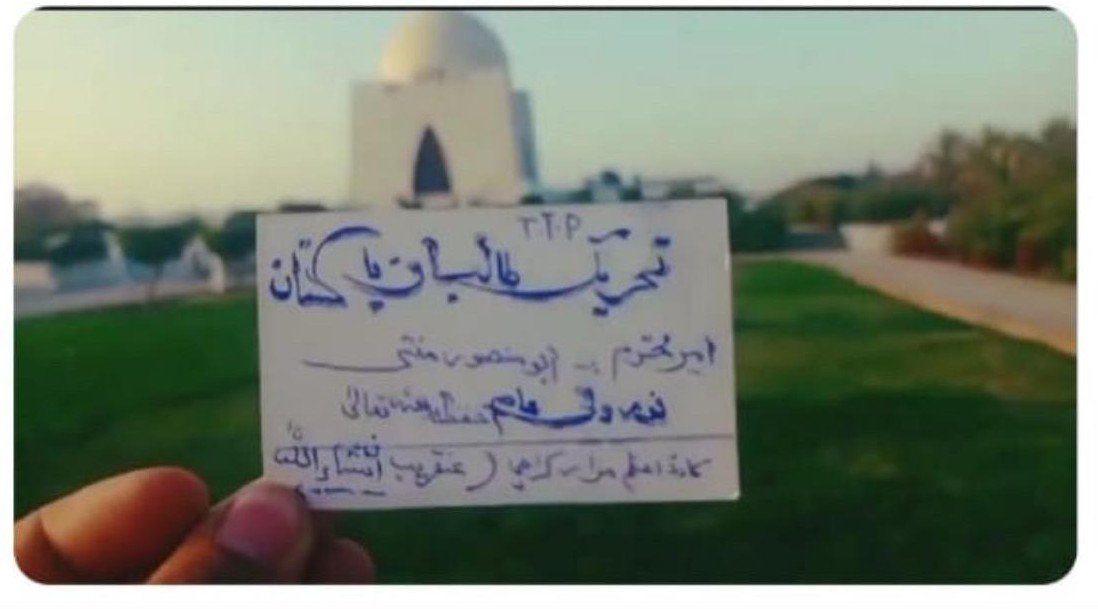 T.T.P
تحریک طالبان پاکستان
امیر محترم :۔ ابو منصور مفتی
نور ولی حفظہ اللہ تعالیٰ
مزار کراچی ( عنقریب انشاءاللہ